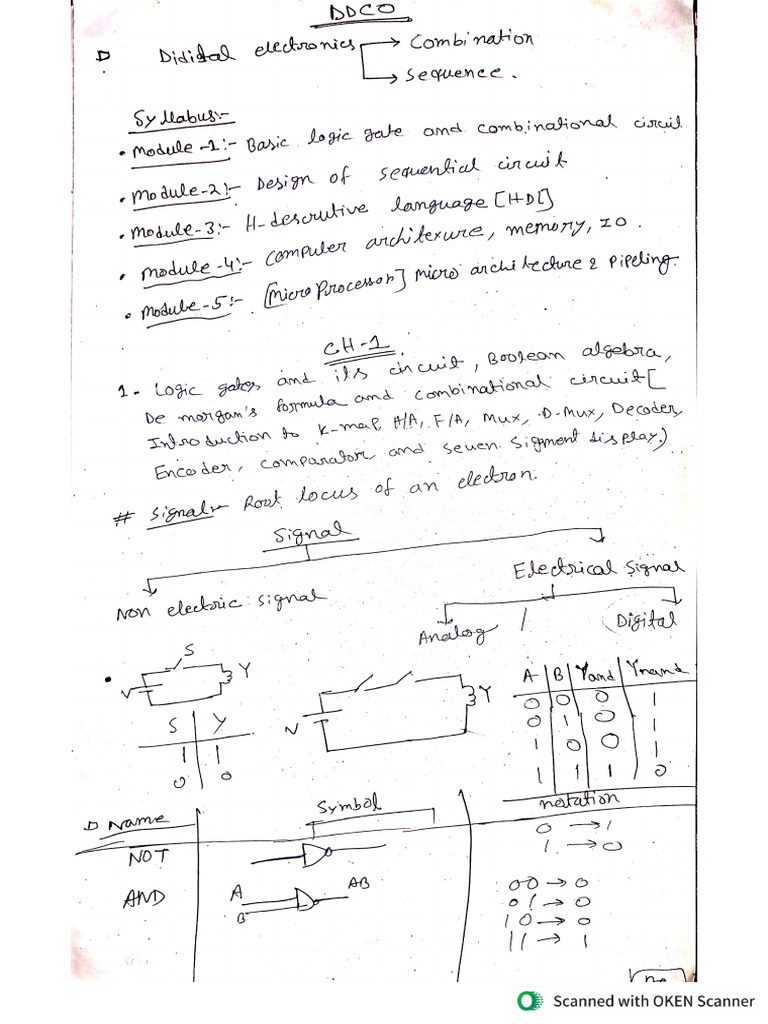 DDCO
D Dididtal electronics → Combination
→ Sequence.
Syllabus:-
• Module-1:- Basic logic gate and combinational circuil
• Module-2:- Design of sequential circuit
• Module-3:- H-descrutive language [HD[]
• Module-4:- Computer architexure, memory, IO.
• Module-5:- [Micro Processor] micro architecture & Pipeling.
CH-1
1- Logic gates and its circuit, Boolean algebra,
De morgan's formula and combinational circuit [
Introduction to K-map, H/A, F/A, Mux, D-Mux, Decoder,
Encoder, comparator and seven Sigment display.)
# Signal:- Root locus of an electron.
Signal
Non electric signal
Electrical Signal
Analog / Digital
S
Y
V
S | Y
1 | 1
0 | 0
Y
V
A | B | Yand | Ynand
0 | 0 | 0 | 1
0 | 1 | 0 | 1
1 | 0 | 0 | 1
1 | 1 | 1 | 0
D Name
Symbol
notation
NOT
0 → 1
1 → 0
AND
A
B
AB
00 → 0
01 → 0
10 → 0
11 → 1
Scanned with OKEN Scanner